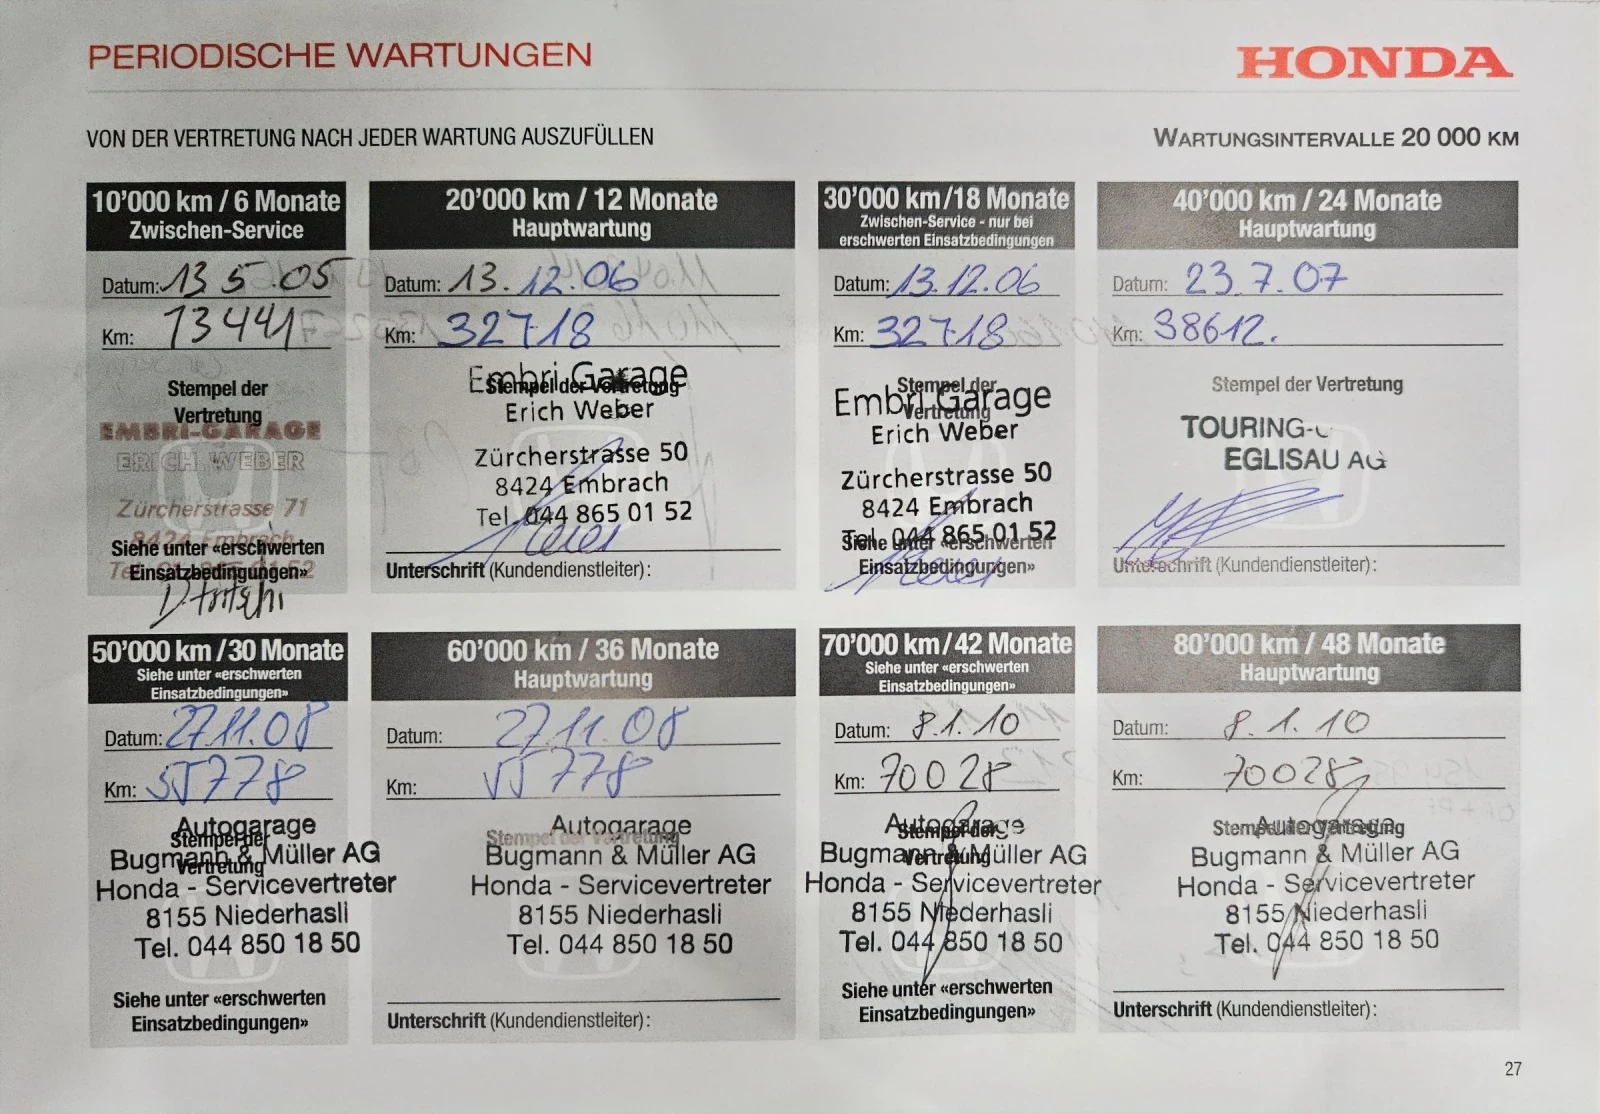 PERIODISCHE WARTUNGEN
HONDA
VON DER VERTRETUNG NACH JEDER WARTUNG AUSZUFÜLLEN
WARTUNGSINTERVALLE 20 000 KM
10'000 km / 6 Monate
Zwischen-Service
Datum: 13 5 .05
Km: 13441
Stempel der
Vertretung
EMBRI-GARAGE
ERICH WEBER
Zürcherstrasse 71
8424 Embrach
Siehe unter «erschwerten
Einsatzbedingungen»
20'000 km / 12 Monate
Hauptwartung
Datum: 13. 12. 06
Km: 32718
Stempel der Vertretung
Embri Garage
Erich Weber
Zürcherstrasse 50
8424 Embrach
Tel. 044 865 01 52
Unterschrift (Kundendienstleiter):
30'000 km/18 Monate
Zwischen-Service - nur bei
erschwerten Einsatzbedingungen
Datum: 13.12.06
Km: 32718
Stempel der
Vertretung
Embri Garage
Erich Weber
Zürcherstrasse 50
8424 Embrach
Tel. 044 865 01 52
Siehe unter «erschwerten
Einsatzbedingungen»
40'000 km / 24 Monate
Hauptwartung
Datum: 23.7.07
Km: 38612.
Stempel der Vertretung
TOURING-
EGLISAU AG
Unterschrift (Kundendienstleiter):
50'000 km/30 Monate
Siehe unter «erschwerten
Einsatzbedingungen»
Datum: 27.11.08
Km: 55778
Stempel der
Vertretung
Autogarage
Bugmann & Müller AG
Honda - Servicevertreter
8155 Niederhasli
Tel. 044 850 18 50
Siehe unter «erschwerten
Einsatzbedingungen»
60'000 km / 36 Monate
Hauptwartung
Datum: 27.11.08
Km: 55778
Stempel der Vertretung
Autogarage
Bugmann & Müller AG
Honda - Servicevertreter
8155 Niederhasli
Tel. 044 850 18 50
Unterschrift (Kundendienstleiter):
70'000 km/42 Monate
Siehe unter «erschwerten
Einsatzbedingungen»
Datum: 8.1.10
Km: 70028
Stempel der
Vertretung
Autogarage
Bugmann & Müller AG
Honda - Servicevertreter
8155 Niederhasli
Tel. 044 850 18 50
Siehe unter «erschwerten
Einsatzbedingungen»
80'000 km / 48 Monate
Hauptwartung
Datum: 8.1.10
Km: 70028
Stempel der Vertretung
Autogarage
Bugmann & Müller AG
Honda - Servicevertreter
8155 Niederhasli
Tel. 044 850 18 50
Unterschrift (Kundendienstleiter):
27